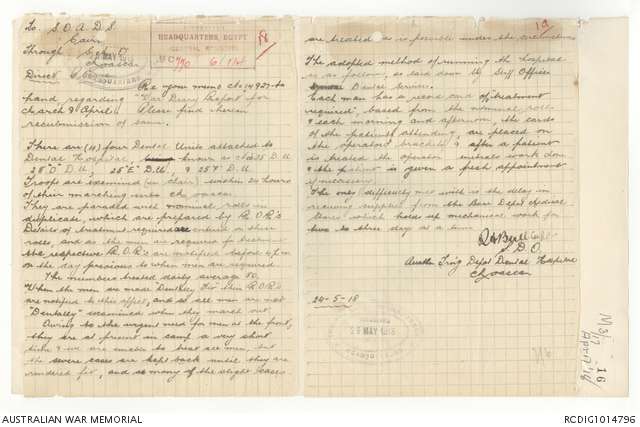 To S.O.A.D.S.
Cairo
Through
HEADQUARTERS, EGYPT
MAY 1918
Direct
Re your memo 14927 to
hand regarding "War Diary Report for
March & April" Please find herein
resubmission of same.
There are (4) four Dental Units attached to
Dental Hospital, known as 25 D.U.
25 "D" D.U., 25 "E" D.U. & 25 F D.U.
Troops are examined (in chair) within 24 hours
of their marching into
They are paraded with nominal rolls in
duplicate, which are prepared by R.O.R's
Details of treatment required are entered on their
rolls, and as the men are required for treatment
the respective R.O.R's are notified before 4 p.m
on the day previous to when men are required
The number treated daily average 80.
When the men are made "Dentally Fit" then R.O.R's
are notified to this effect, and so all men are not
"Dentally" examined when they march out.
Owing to the urgent need for men at the front,
they are at present in camp a very short
time & we are unable to treat all men, but
the severe cases are kept back until they are
rendered fit, and as many of the slight cases
19
are treated as is possible under the circumstances
The adopted method of running the hospital
is as follows, as laid down by Staff Officer
Dental Services.
Each man has a record card of treatment
required, based from the nominal rolls
& each morning and afternoon, the cards
of the patients attending, are placed on
the operators brackets & after a patient
is treated the operator initials work done
& the patient is given a fresh appointment
if necessary.
The only difficulty met with is the delay in
receiving supplies from the Base Depot Medical
Stores which holds up mechanical work for
two to three days at a time.
Capt
D.O.
Austn Trng Depot Dental Hospital
24-5-18
25 MAY 1918
16
AUSTRALIAN WAR MEMORIAL
RCDIG1014796